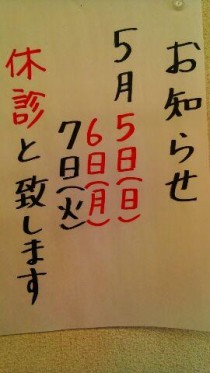 お知らせ
5月5日(日)
6日(月)
7日(火)
休診と致します